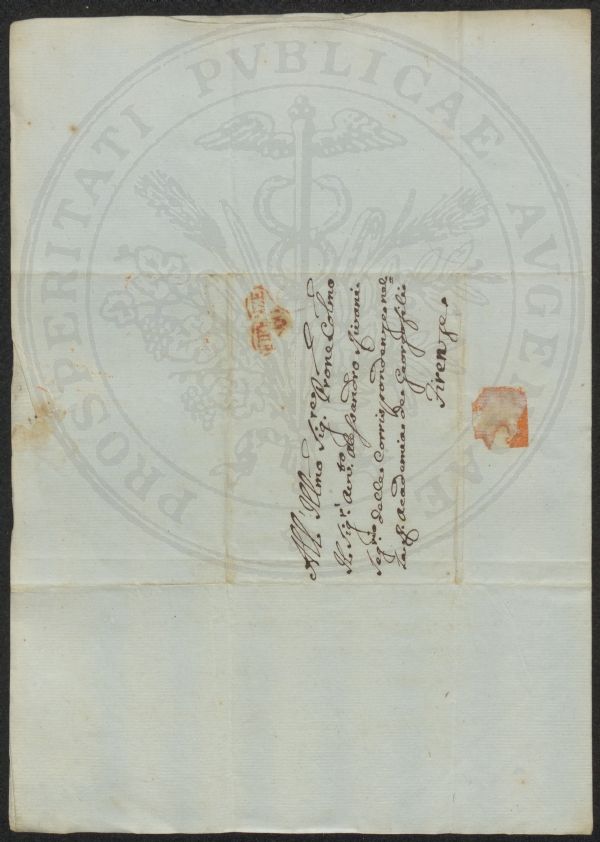 PROSPERITATI PVBLICAE AVGENDAE
All' Illmo Sigre Prone Colmo
Il Sigr. Avvto. Alessandro Rivani
Segrio delle Corrispondenze nel
Acadamia dei Georgofili
Firenze